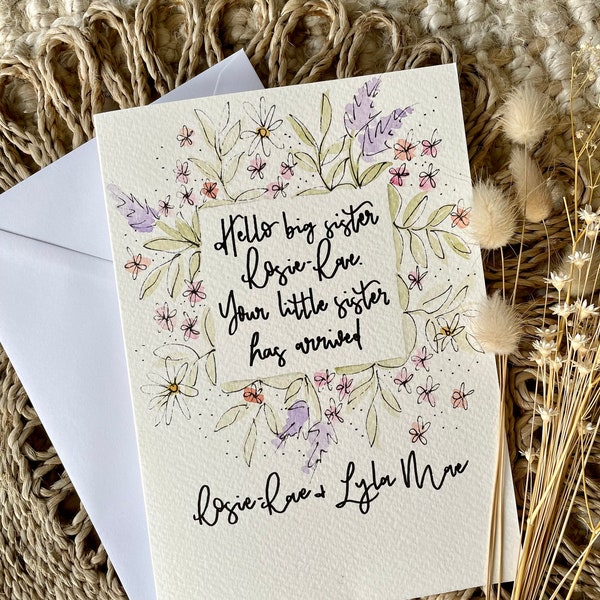 Hello big sister
Rosie-Rae.
Your little sister
has arrived
Rosie-Rae & Lyla Mae